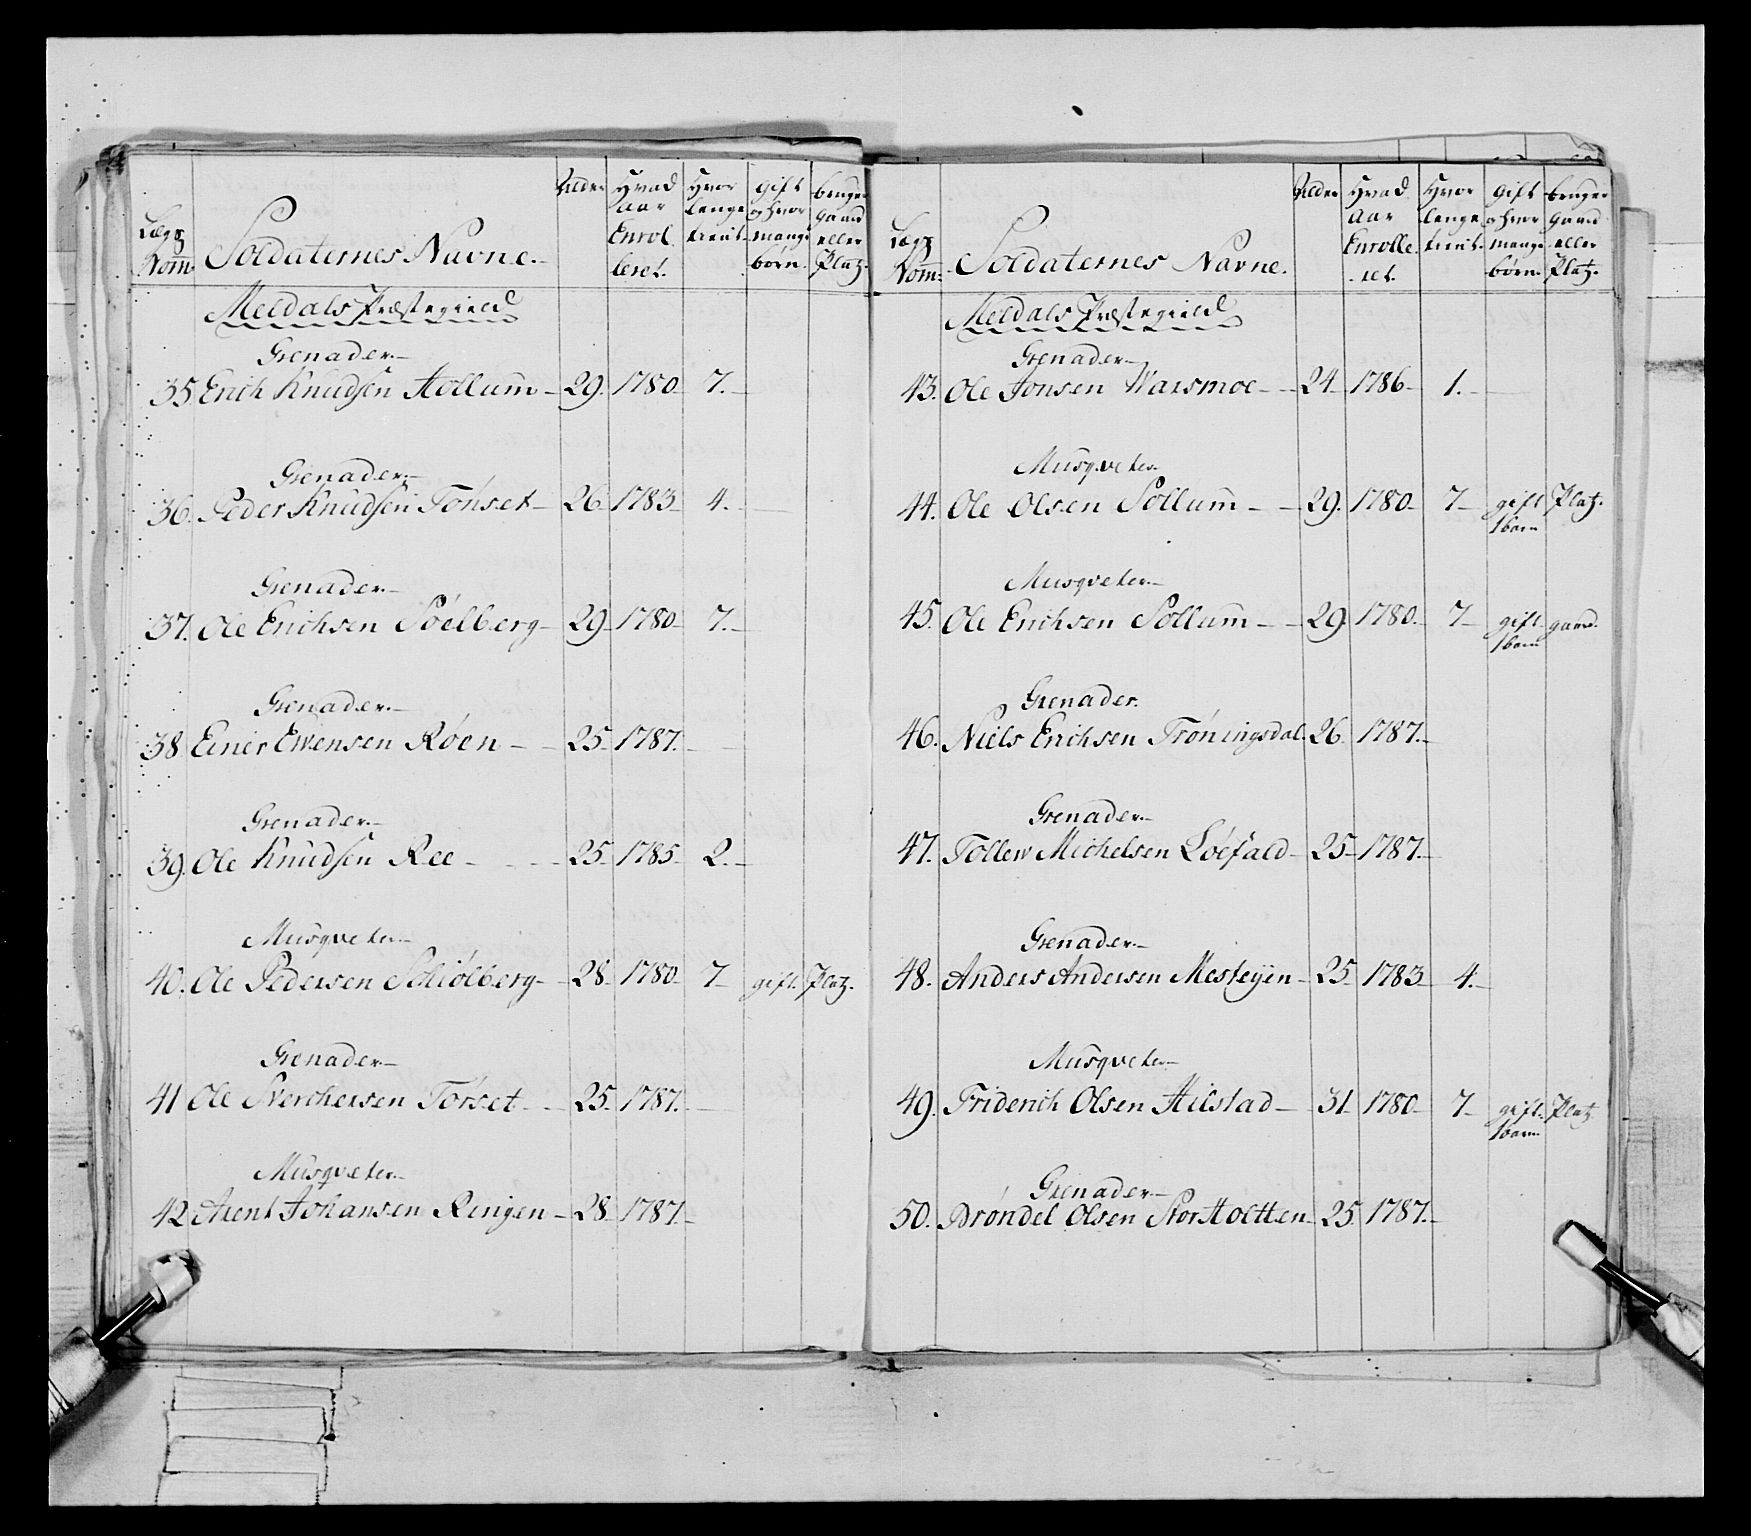 Lægg Nom: Soldaternes Navne. Alder Hvad aar Enrolleret. Hvor lenge tient. gift og hvor mange børn. bruger gaard eller Platz.
Meldals Præstegield
Grenader.
35 Erich Knudsen Hollum 29. 1780 7.
Grenader.
36. Peder Knudsen Tønset 26 1783 4.
Grenader.
37. Ole Erichsen Søelberg 29 1780 7.
Grenader.
38 Einer Ewensen Røen 25 1787.
Grenader.
39. Ole Knudsen Ree 25 1785 2.
Musqveter.
40. Ole Pedersen Schiølberg 28 1780 7 gift. Platz.
Grenader.
41 Ole Sverchersen Tørset 25 1787.
Musqveter.
42 Arent Johansen Ringen 28 1787.
Lægg Nom: Soldaternes Navne. Alder Hvad aar Enrolleret. Hvor lenge tient. gift og hvor mange børn. bruger gaard eller Platz.
Meldals Præstegield
Grenader.
43. Ole Jonsen Warsmoe 24 1786 1.
Musqveter.
44. Ole Olsen Sollum 29. 1780 7 gift Platz.
1 barn
Musqveter.
45. Ole Erichsen Sollum 29 1780. 7 gift gaard.
1 barn
Grenader.
46. Niels Erichsen Trøningsdal. 26 1787.
Grenader.
47. Tollew Michelsen Løefald 25 1787.
Grenader.
48. Anders Andersen Mesteyen 25 1783 4.
Musqveter.
49. Friderich Olsen Hilstad 31 1780 7 gift. Platz
1 barn.
Grenader.
50. Brøndel Olsen StorHoltten 25 1787.